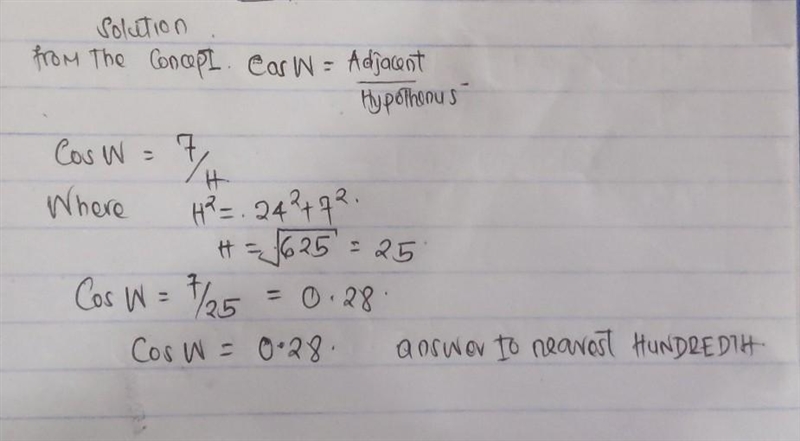 Solution.
from The Concept. Cos W = Adjacent
Hypothenus
Cos W = 7/H
Where H² = . 24² + 7².
H = √625 = 25
Cos W = 7/25 = 0.28.
Cos W = 0.28. answer to nearest HUNDREDTH.